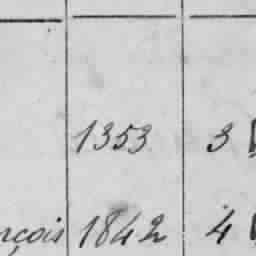 1353 3
nçois 1842 4